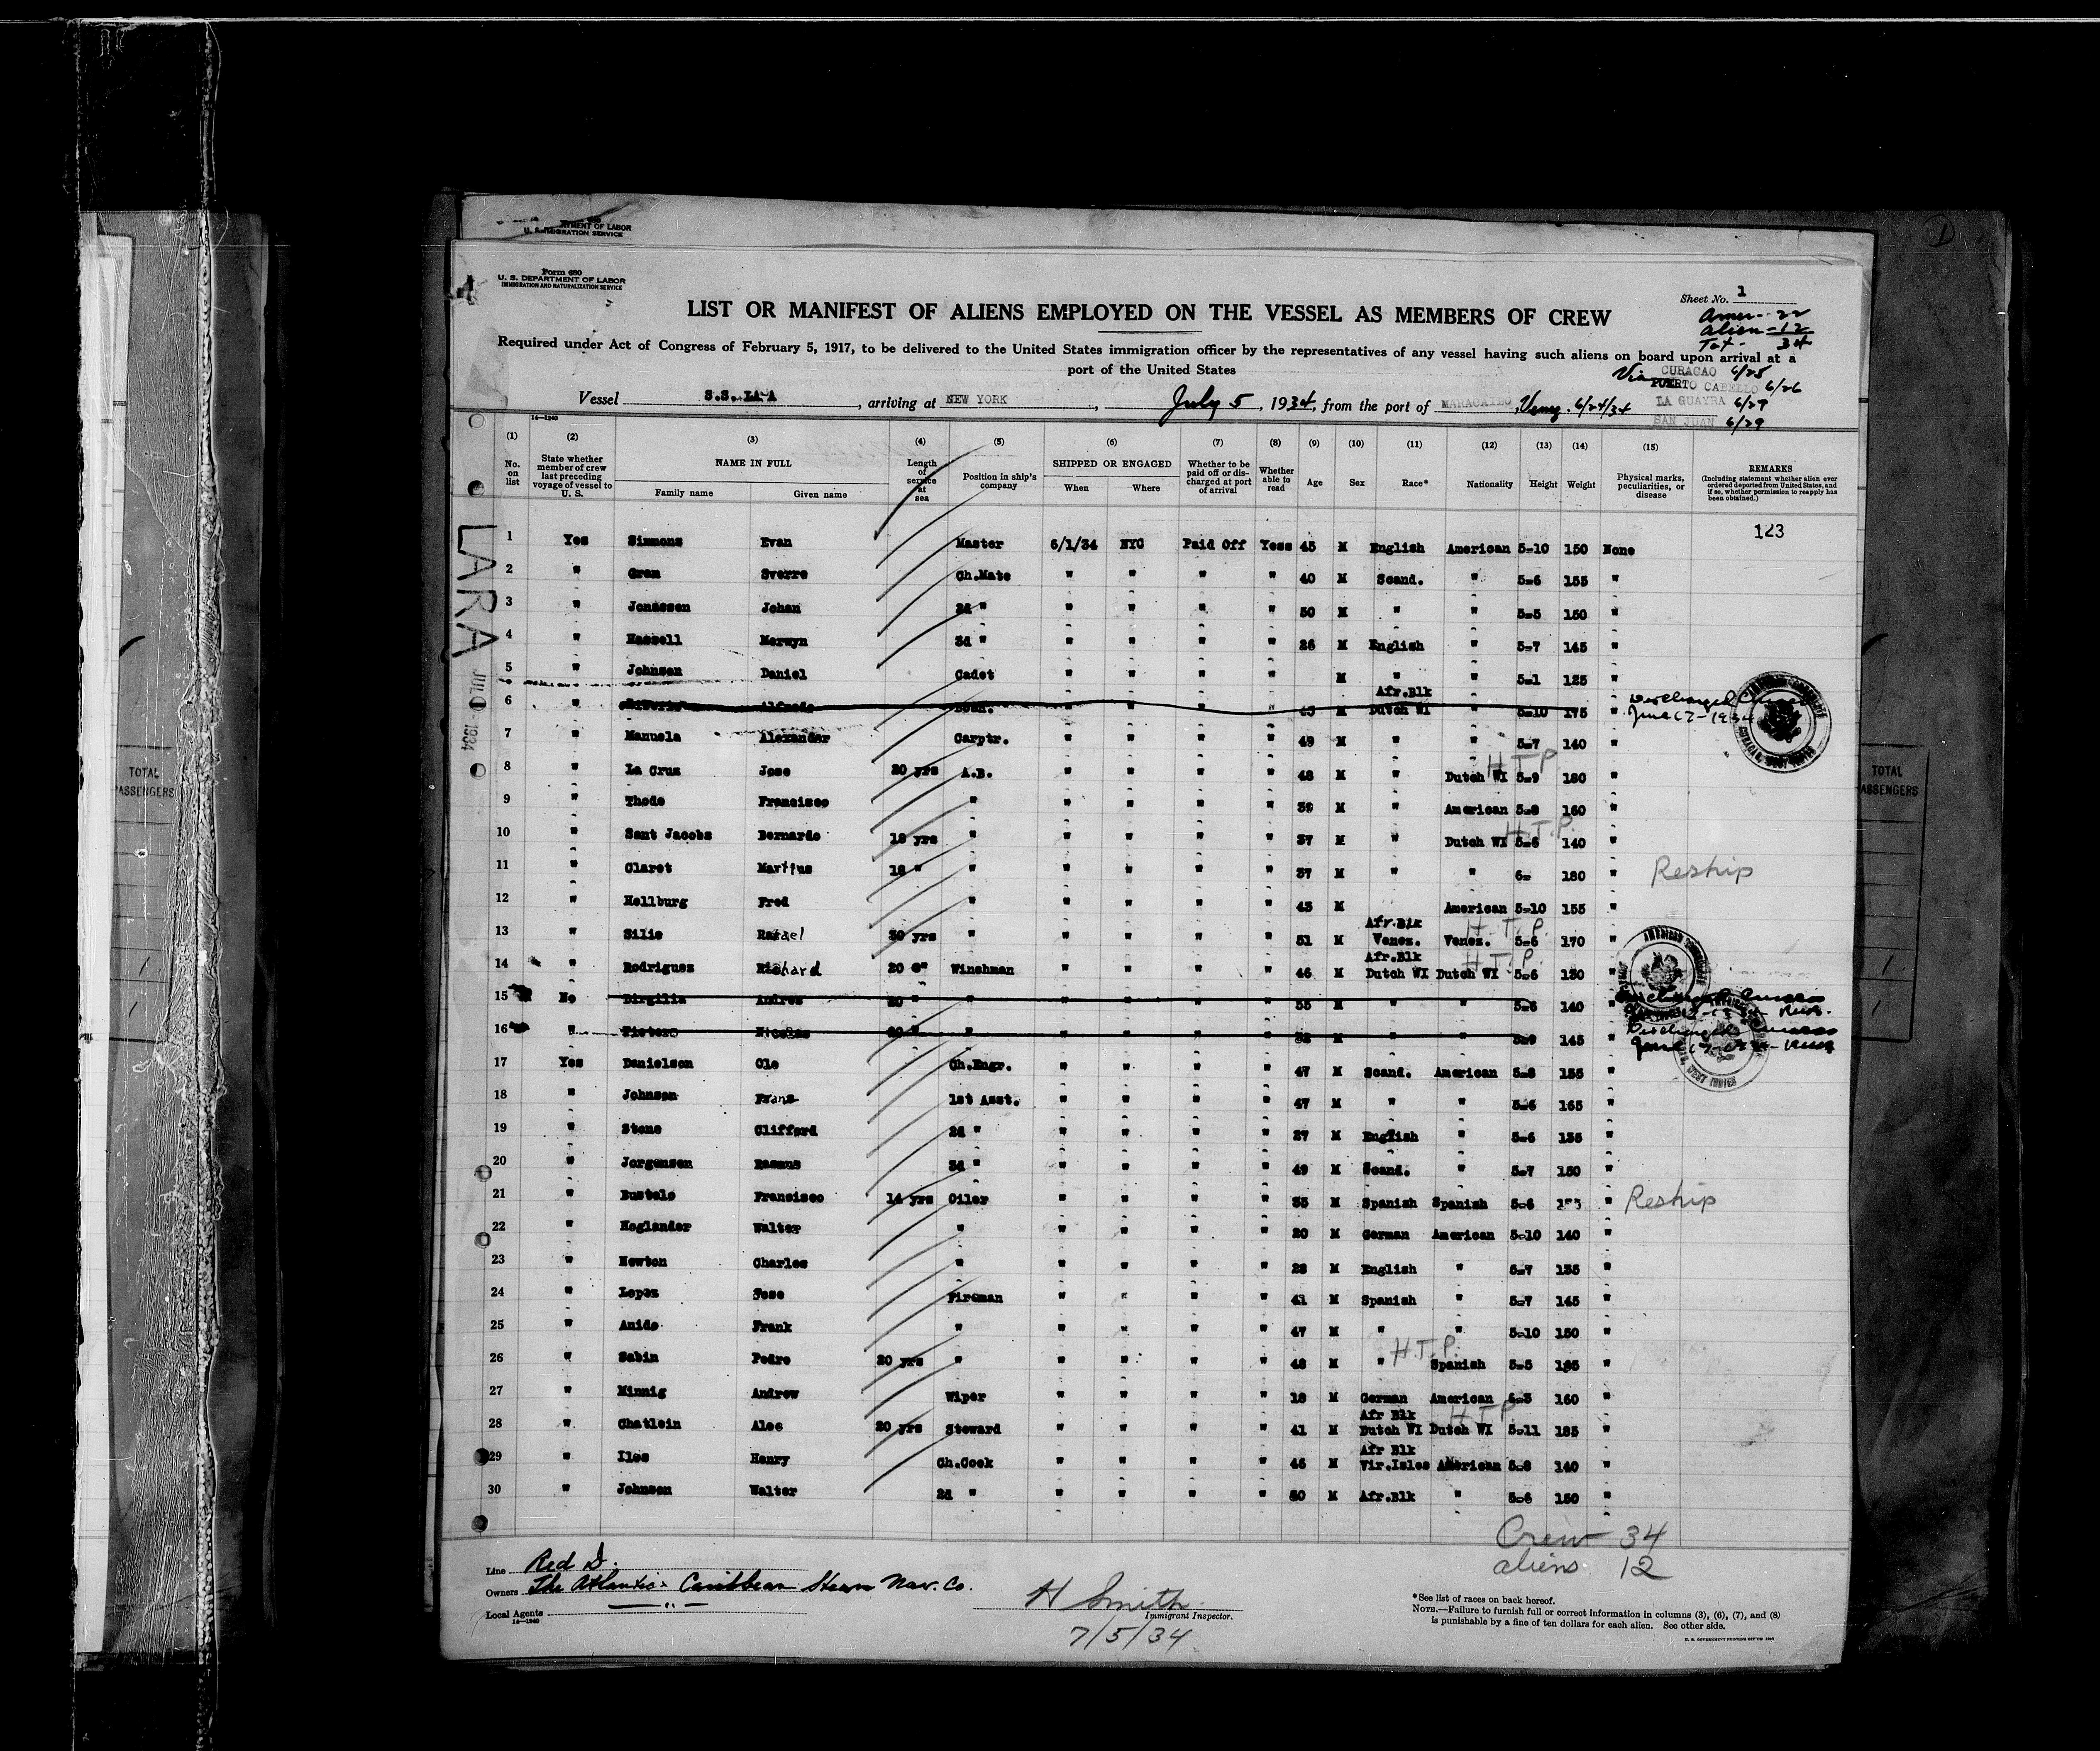 DEPARTMENT OF LABOR
U. S. IMMIGRATION SERVICE
Form 680
U. S. DEPARTMENT OF LABOR
IMMIGRATION AND NATURALIZATION SERVICE
Sheet No. 1
Amer- 22
Alien- 12
Tot- 34
LIST OR MANIFEST OF ALIENS EMPLOYED ON THE VESSEL AS MEMBERS OF CREW
Required under Act of Congress of February 5, 1917, to be delivered to the United States immigration officer by the representatives of any vessel having such aliens on board upon arrival at a
port of the United States
Via CURACAO 6/25
PUERTO CABELLO 6/26
LA GUAYRA 6/27
SAN JUAN 6/29
Vessel S.S. LARA, arriving at NEW YORK, July 5, 1934, from the port of MARACAIBO, Venez. 6/24/34
14—1240
(1) (2) (3) (4) (5) (6) (7) (8) (9) (10) (11) (12) (13) (14) (15)
No. on list
State whether member of crew last preceding voyage of vessel to U. S.
NAME IN FULL
Family name Given name
Length of service at sea
Position in ship's company
SHIPPED OR ENGAGED
When Where
Whether to be paid off or discharged at port of arrival
Whether able to read
Age Sex Race* Nationality Height Weight
Physical marks, peculiarities, or disease
REMARKS
(Including statement whether alien ever ordered deported from United States, and if so, whether permission to reapply has been obtained.)
123
LARA
JUL 1934
1 Yes Simmons Evan Master 6/1/34 NYC Paid Off Yess 45 M English American 5-10 150 None
2 " Gram Sverre Ch.Mate " " " " 40 M Scand. " 5-6 155 "
3 " Jonassen Johan 2d " " " " " 50 M " " 5-5 150 "
4 " Hassell Merwyn 3d " " " " " 26 M English " 5-7 145 "
5 " Johnson Daniel Cadet " " " " M " " 5-1 125 "
6 " Alfredo Bosn. " " " " 45 M Afr.Blk Dutch WI " 5-10 175 " Discharged
June 17-1934
7 " Manuela Alexander Carptr. " " " " 49 M " " 5-7 140 "
8 " La Cruz Jose 20 yrs A.B. " " " " 48 M " Dutch WI 5-9 180 " H T P
9 " Thode Francisco " " " " " 39 M " American 5-8 160 "
10 " Sant Jacobs Bernardo 18 yrs " " " " " 37 M " Dutch WI 5-6 140 " H.T.P.
11 " Claret Martius 18 " " " " " " 37 M " " 6- 180 " Reship
12 " Hellburg Fred " " " " " 43 M American 5-10 155 "
13 " Silie Rafael 30 yrs " " " " " 51 M Afr.Blk Venez. Venez. 5-6 170 " H.T.P.
14 " Rodriguez Richard 20 " Winchman " " " " 46 M Afr.Blk Dutch WI Dutch WI 5-6 130 " H T P.
15 No Dirgilia Andres 20 " " " " " " 35 M " " 5-6 140 " Discharged Curacao
16 " Pieters Nicolas 20 " " " " " " M " " 5-9 145 " Discharged Curacao
June 17-1934
17 Yes Danielson Ole Ch.Engr. " " " " 47 M Scand. American 5-8 155 "
18 " Johnson Frans 1st Asst. " " " " 47 M " " 5-6 165 "
19 " Stone Clifford 2d " " " " " 27 M English " 5-6 135 "
20 " Jorgensen Rasmus 3d " " " " " 49 M Scand. " 5-7 150 "
21 " Bustelo Francisco 14 yrs Oiler " " " " 35 M Spanish Spanish 5-6 " Reship
22 " Hoglander Walter " " " " " 20 M German American 5-10 140 "
23 " Newton Charles " " " " " 28 M English " 5-7 135 "
24 " Lopez Jose Fireman " " " " 41 M Spanish " 5-7 145 "
25 " Anido Frank " " " " " 47 M " " 5-10 150 "
26 " Sabin Pedro 20 yrs " " " " " 48 M " Spanish 5-5 185 " H.T.P.
27 " Minnig Andrew Wiper " " " " 18 M German American 6-3 160 "
28 " Chatlein Alec 20 yrs Steward " " " " 41 M Afr Blk Dutch WI Dutch WI 5-11 185 " H T P
29 " Iles Henry Ch.Cook " " " " 46 M Afr Blk Vir.Isles American 5-8 140 "
30 " Johnson Walter 2d " " " " " 50 M Afr.Blk " 5-6 150 "
Crew 34
aliens 12
Line Red D.
Owners The Atlantic & Caribbean Steam Nav. Co.
Local Agents — " —
14—1240
H Smith
Immigrant Inspector.
7/5/34
*See list of races on back hereof.
NOTE.—Failure to furnish full or correct information in columns (3), (6), (7), and (8)
is punishable by a fine of ten dollars for each alien. See other side.
TOTAL
PASSENGERS
TOTAL
PASSENGERS